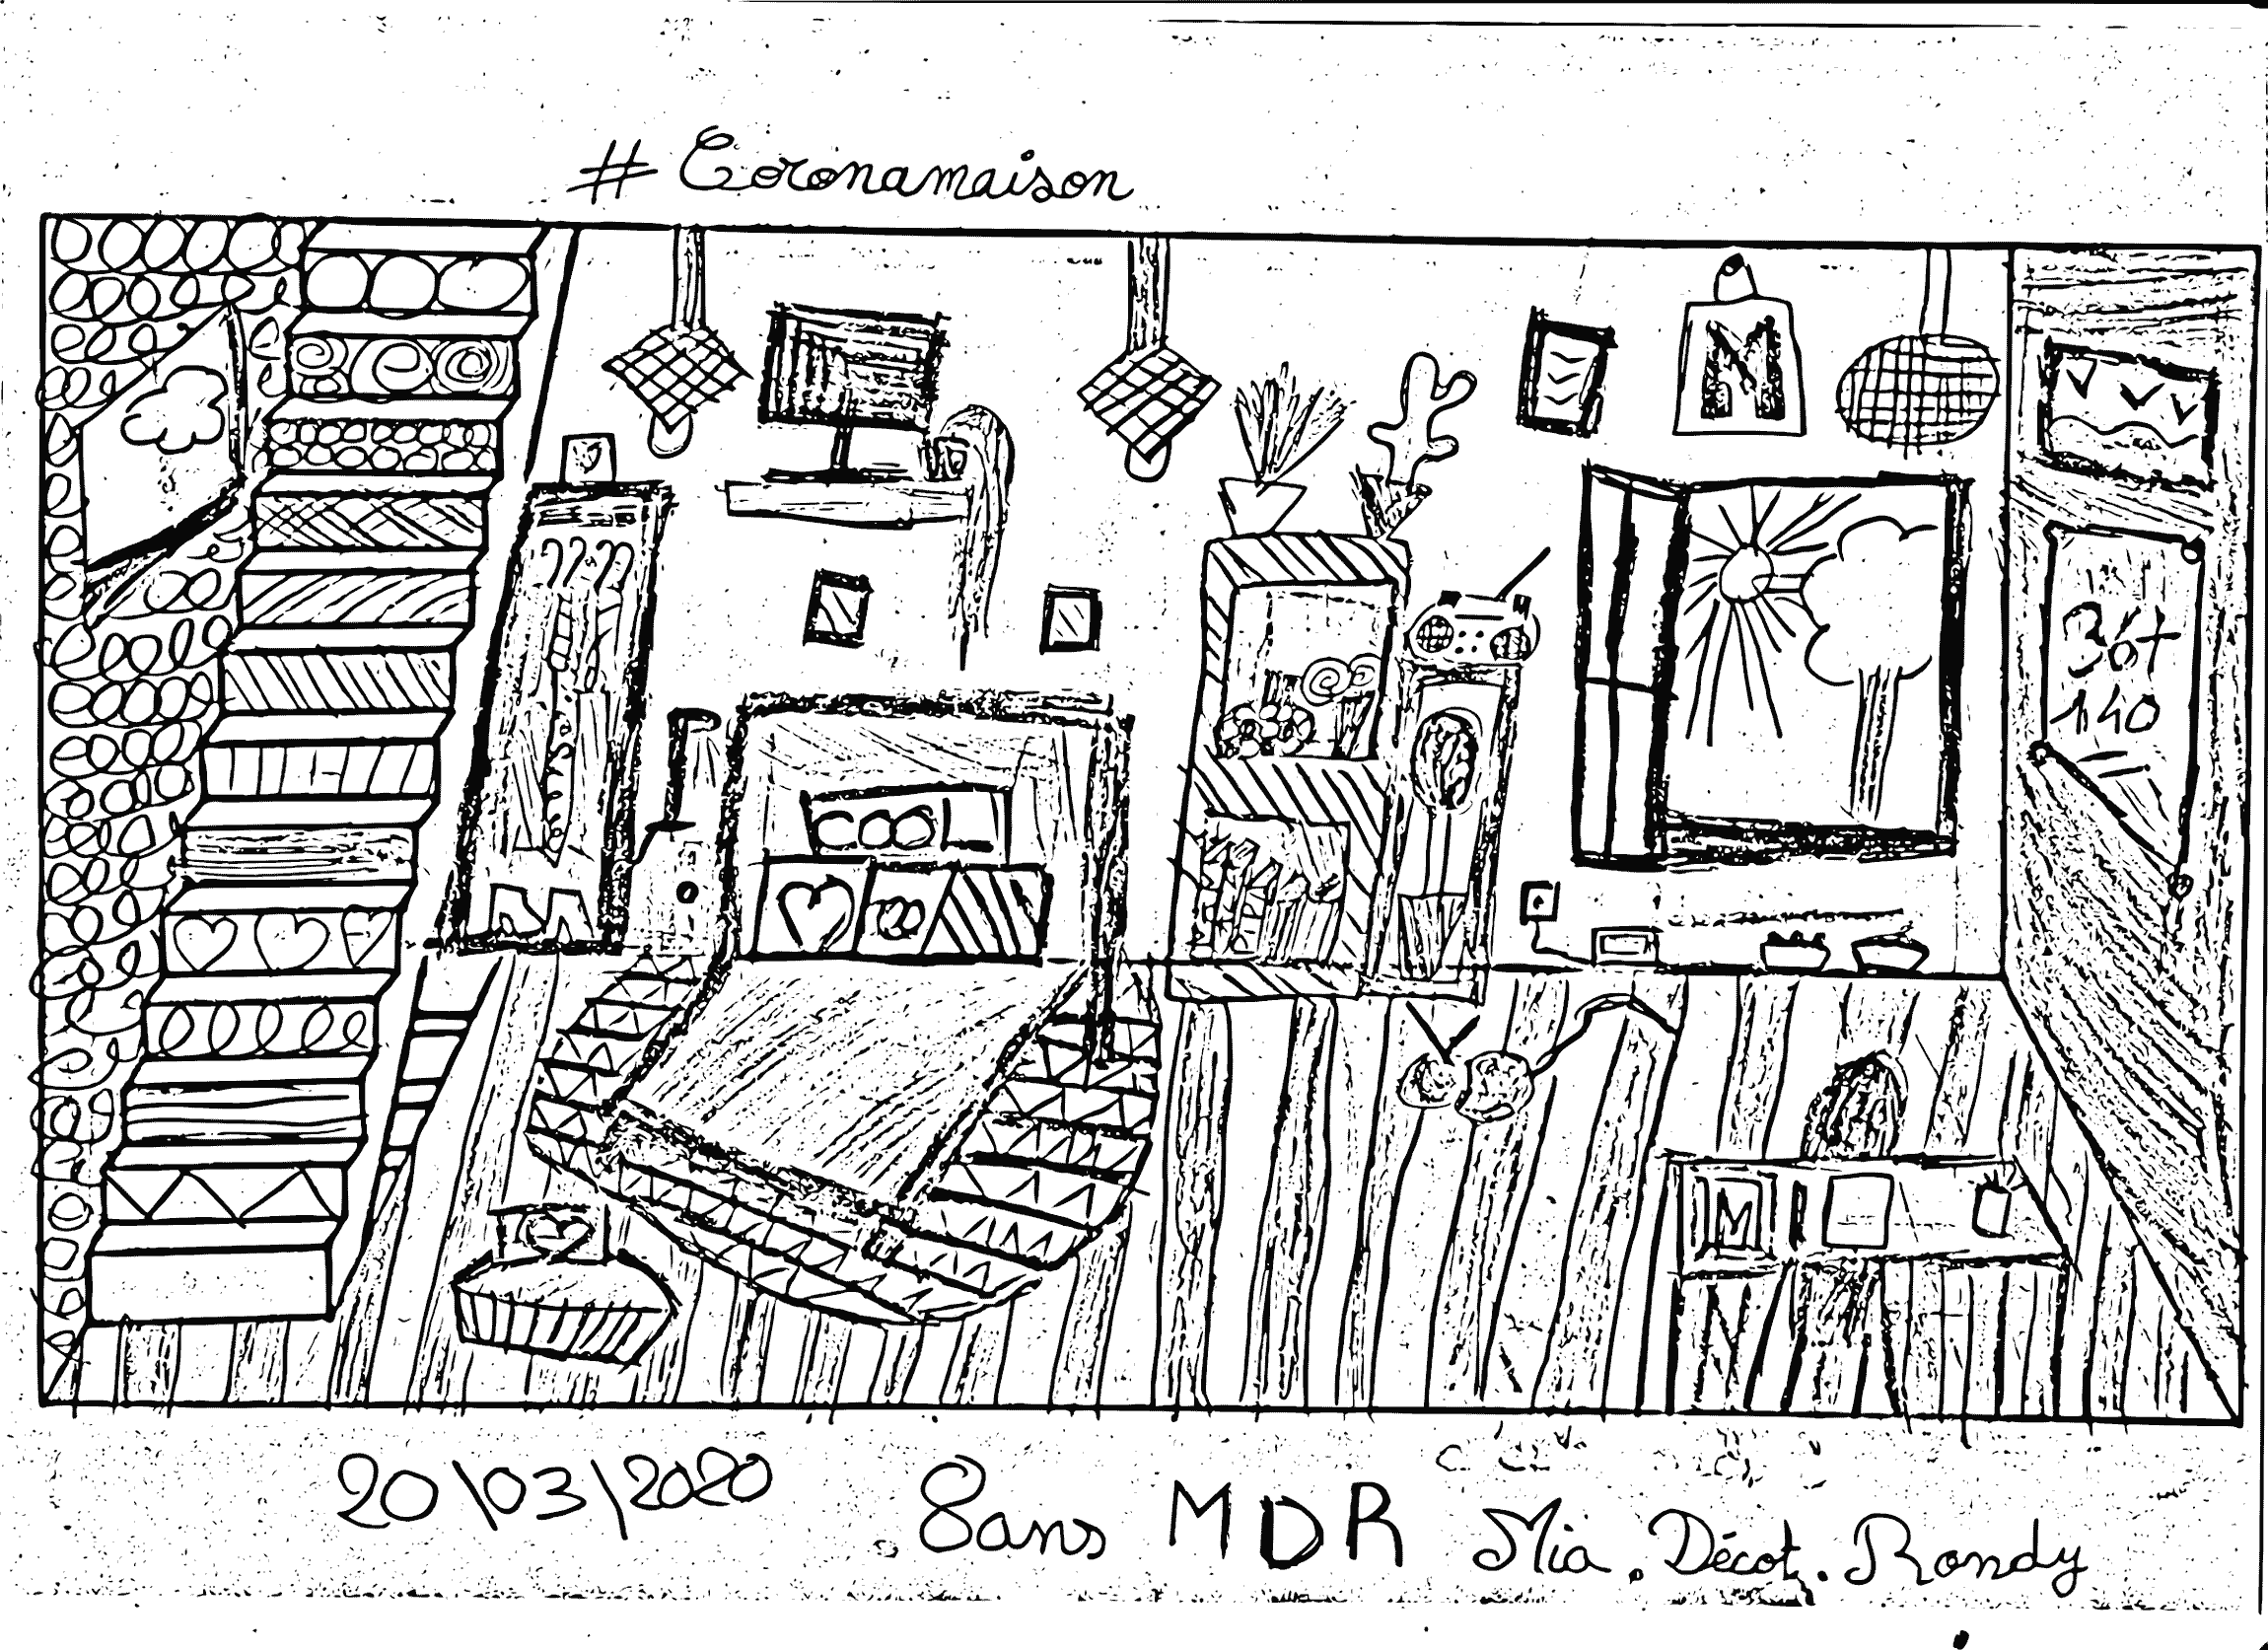 # Coronamaison
M
COOL
M
20\03/2020
8ans MDR Mia. Décot. Rondy